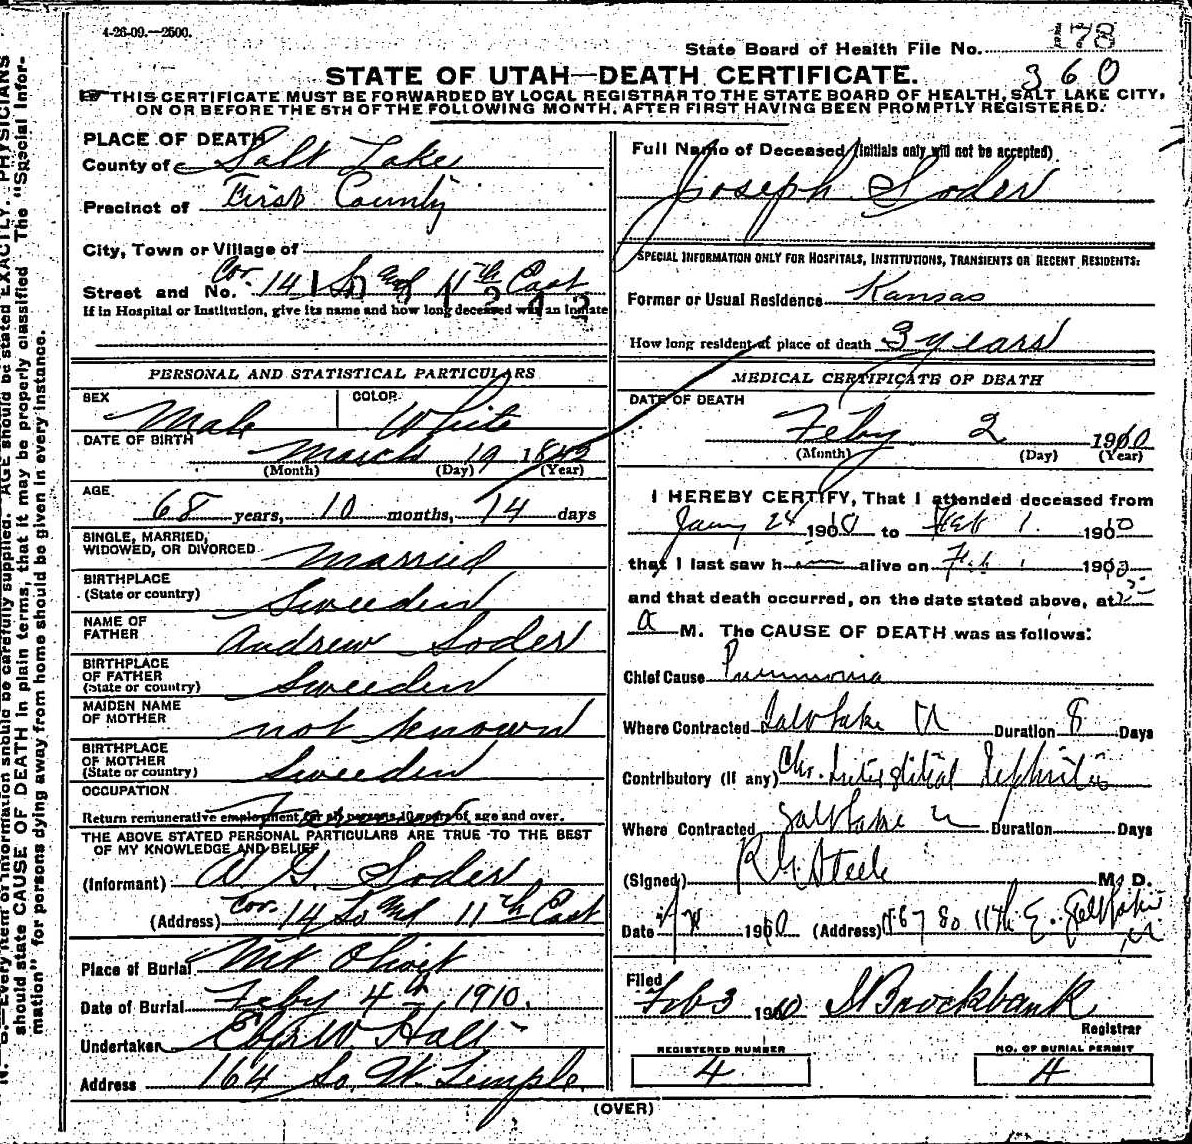 4-26-09.—2500.
State Board of Health File No. 178
360
STATE OF UTAH—DEATH CERTIFICATE.
THIS CERTIFICATE MUST BE FORWARDED BY LOCAL REGISTRAR TO THE STATE BOARD OF HEALTH, SALT LAKE CITY,
ON OR BEFORE THE 5TH OF THE FOLLOWING MONTH, AFTER FIRST HAVING BEEN PROMPTLY REGISTERED.
PLACE OF DEATH
County of Salt Lake
Precinct of First County
City, Town or Village of
Street and No. Cor. 14 So and 11th East
If in Hospital or Institution, give its name and how long deceased was an inmate
PERSONAL AND STATISTICAL PARTICULARS
SEX Male
COLOR White
DATE OF BIRTH March 19
(Month) (Day) (Year)
AGE 68 years, 10 months, 14 days
SINGLE, MARRIED,
WIDOWED, OR DIVORCED Married
BIRTHPLACE
(State or country) Sweeden
NAME OF
FATHER Andrew Soder
BIRTHPLACE
OF FATHER
(State or country) Sweeden
MAIDEN NAME
OF MOTHER not known
BIRTHPLACE
OF MOTHER
(State or country) Sweeden
OCCUPATION
Return remunerative employment for all persons 10 years of age and over.
THE ABOVE STATED PERSONAL PARTICULARS ARE TRUE TO THE BEST
OF MY KNOWLEDGE AND BELIEF
(Informant) A G. Soder
(Address) Cor. 14 So and 11th East
Place of Burial Mt Olivit
Date of Burial Feby 4th 1910.
Undertaker Eber W. Hall
Address 164 So. W. Temple.
Full Name of Deceased (initials only will not be accepted)
Joseph Soder
SPECIAL INFORMATION ONLY FOR HOSPITALS, INSTITUTIONS, TRANSIENTS OR RECENT RESIDENTS:
Former or Usual Residence Kansas
How long resident at place of death 3 years
MEDICAL CERTIFICATE OF DEATH
DATE OF DEATH
Feby. 2 1910
(Month) (Day) (Year)
I HEREBY CERTIFY, That I attended deceased from
Jany 24 1910 to Feb 1. 1910
that I last saw h im alive on Feb 1 1910
and that death occurred, on the date stated above, at
a M. The CAUSE OF DEATH was as follows:
Chief Cause Pneumonia
Where Contracted Salt Lake Duration 8 Days
Contributory (if any) Chr. Interstitial Nephritis
Where Contracted Salt Lake Duration Days
(Signed) R. G. Steele M. D.
Date 1910 (Address) 1567 So 11th E. Salt Lake
Filed
Feb 3 1910 S Brockbank
Registrar
REGISTERED NUMBER
4
NO. OF BURIAL PERMIT
4
(OVER)
N. B.—Every item of information should be carefully supplied. AGE should be stated EXACTLY. PHYSICIANS
should state CAUSE OF DEATH in plain terms, that it may be properly classified. The "Special Infor-
mation" for persons dying away from home should be given in every instance.